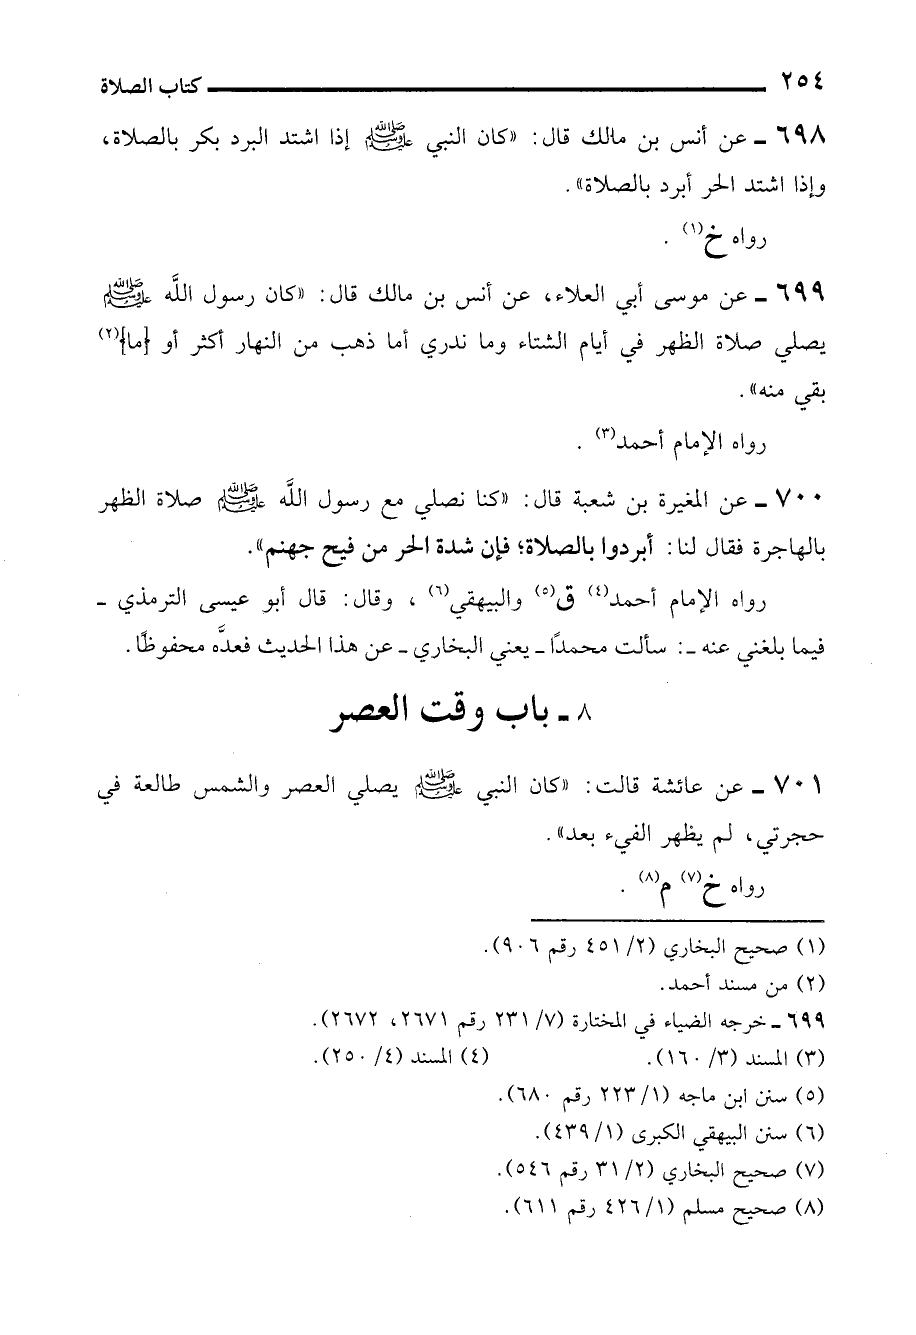 ٢٥٤ كتاب الصلاة
٦٩٨ ـ عن أنس بن مالك قال: «كان النبي ﷺ إذا اشتد البرد بكر بالصلاة،
وإذا اشتد الحر أبرد بالصلاة».
رواه خ(١) .
٦٩٩ ـ عن موسى أبي العلاء، عن أنس بن مالك قال: «كان رسول اللَّه ﷺ
يصلي صلاة الظهر في أيام الشتاء وما ندري أما ذهب من النهار أكثر أو {ما}(٢)
بقي منه».
رواه الإمام أحمد(٣) .
٧٠٠ ـ عن المغيرة بن شعبة قال: «كنا نصلي مع رسول اللَّه ﷺ صلاة الظهر
بالهاجرة فقال لنا: أبردوا بالصلاة؛ فإن شدة الحر من فيح جهنم».
رواه الإمام أحمد(٤) ق(٥) والبيهقي(٦) ، وقال: قال أبو عيسى الترمذي ـ
فيما بلغني عنه ـ: سألت محمدًا ـ يعني البخاري ـ عن هذا الحديث فعدَّه محفوظًا.
٨ ـ باب وقت العصر
٧٠١ ـ عن عائشة قالت: «كان النبي ﷺ يصلي العصر والشمس طالعة في
حجرتي، لم يظهر الفيء بعد».
رواه خ(٧) م(٨) .
(١) صحيح البخاري (٢/ ٤٥١ رقم ٩٠٦).
(٢) من مسند أحمد.
٦٩٩ ـ خرجه الضياء في المختارة (٧/ ٢٣١ رقم ٢٦٧١، ٢٦٧٢).
(٣) المسند (٣/ ١٦٠). (٤) المسند (٤/ ٢٥٠).
(٥) سنن ابن ماجه (١/ ٢٢٣ رقم ٦٨٠).
(٦) سنن البيهقي الكبرى (١/ ٤٣٩).
(٧) صحيح البخاري (٢/ ٣١ رقم ٥٤٦).
(٨) صحيح مسلم (١/ ٤٢٦ رقم ٦١١).